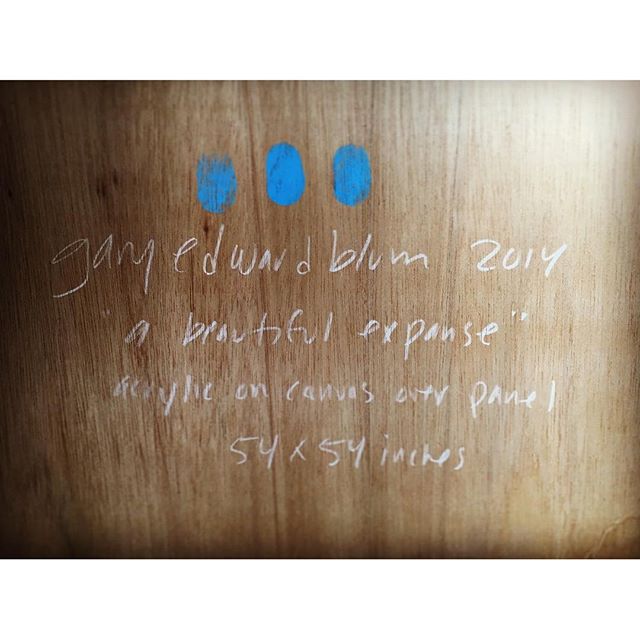 gary edward blum 2014
"a beautiful expanse"
acrylic on canvas over panel
54 x 54 inches